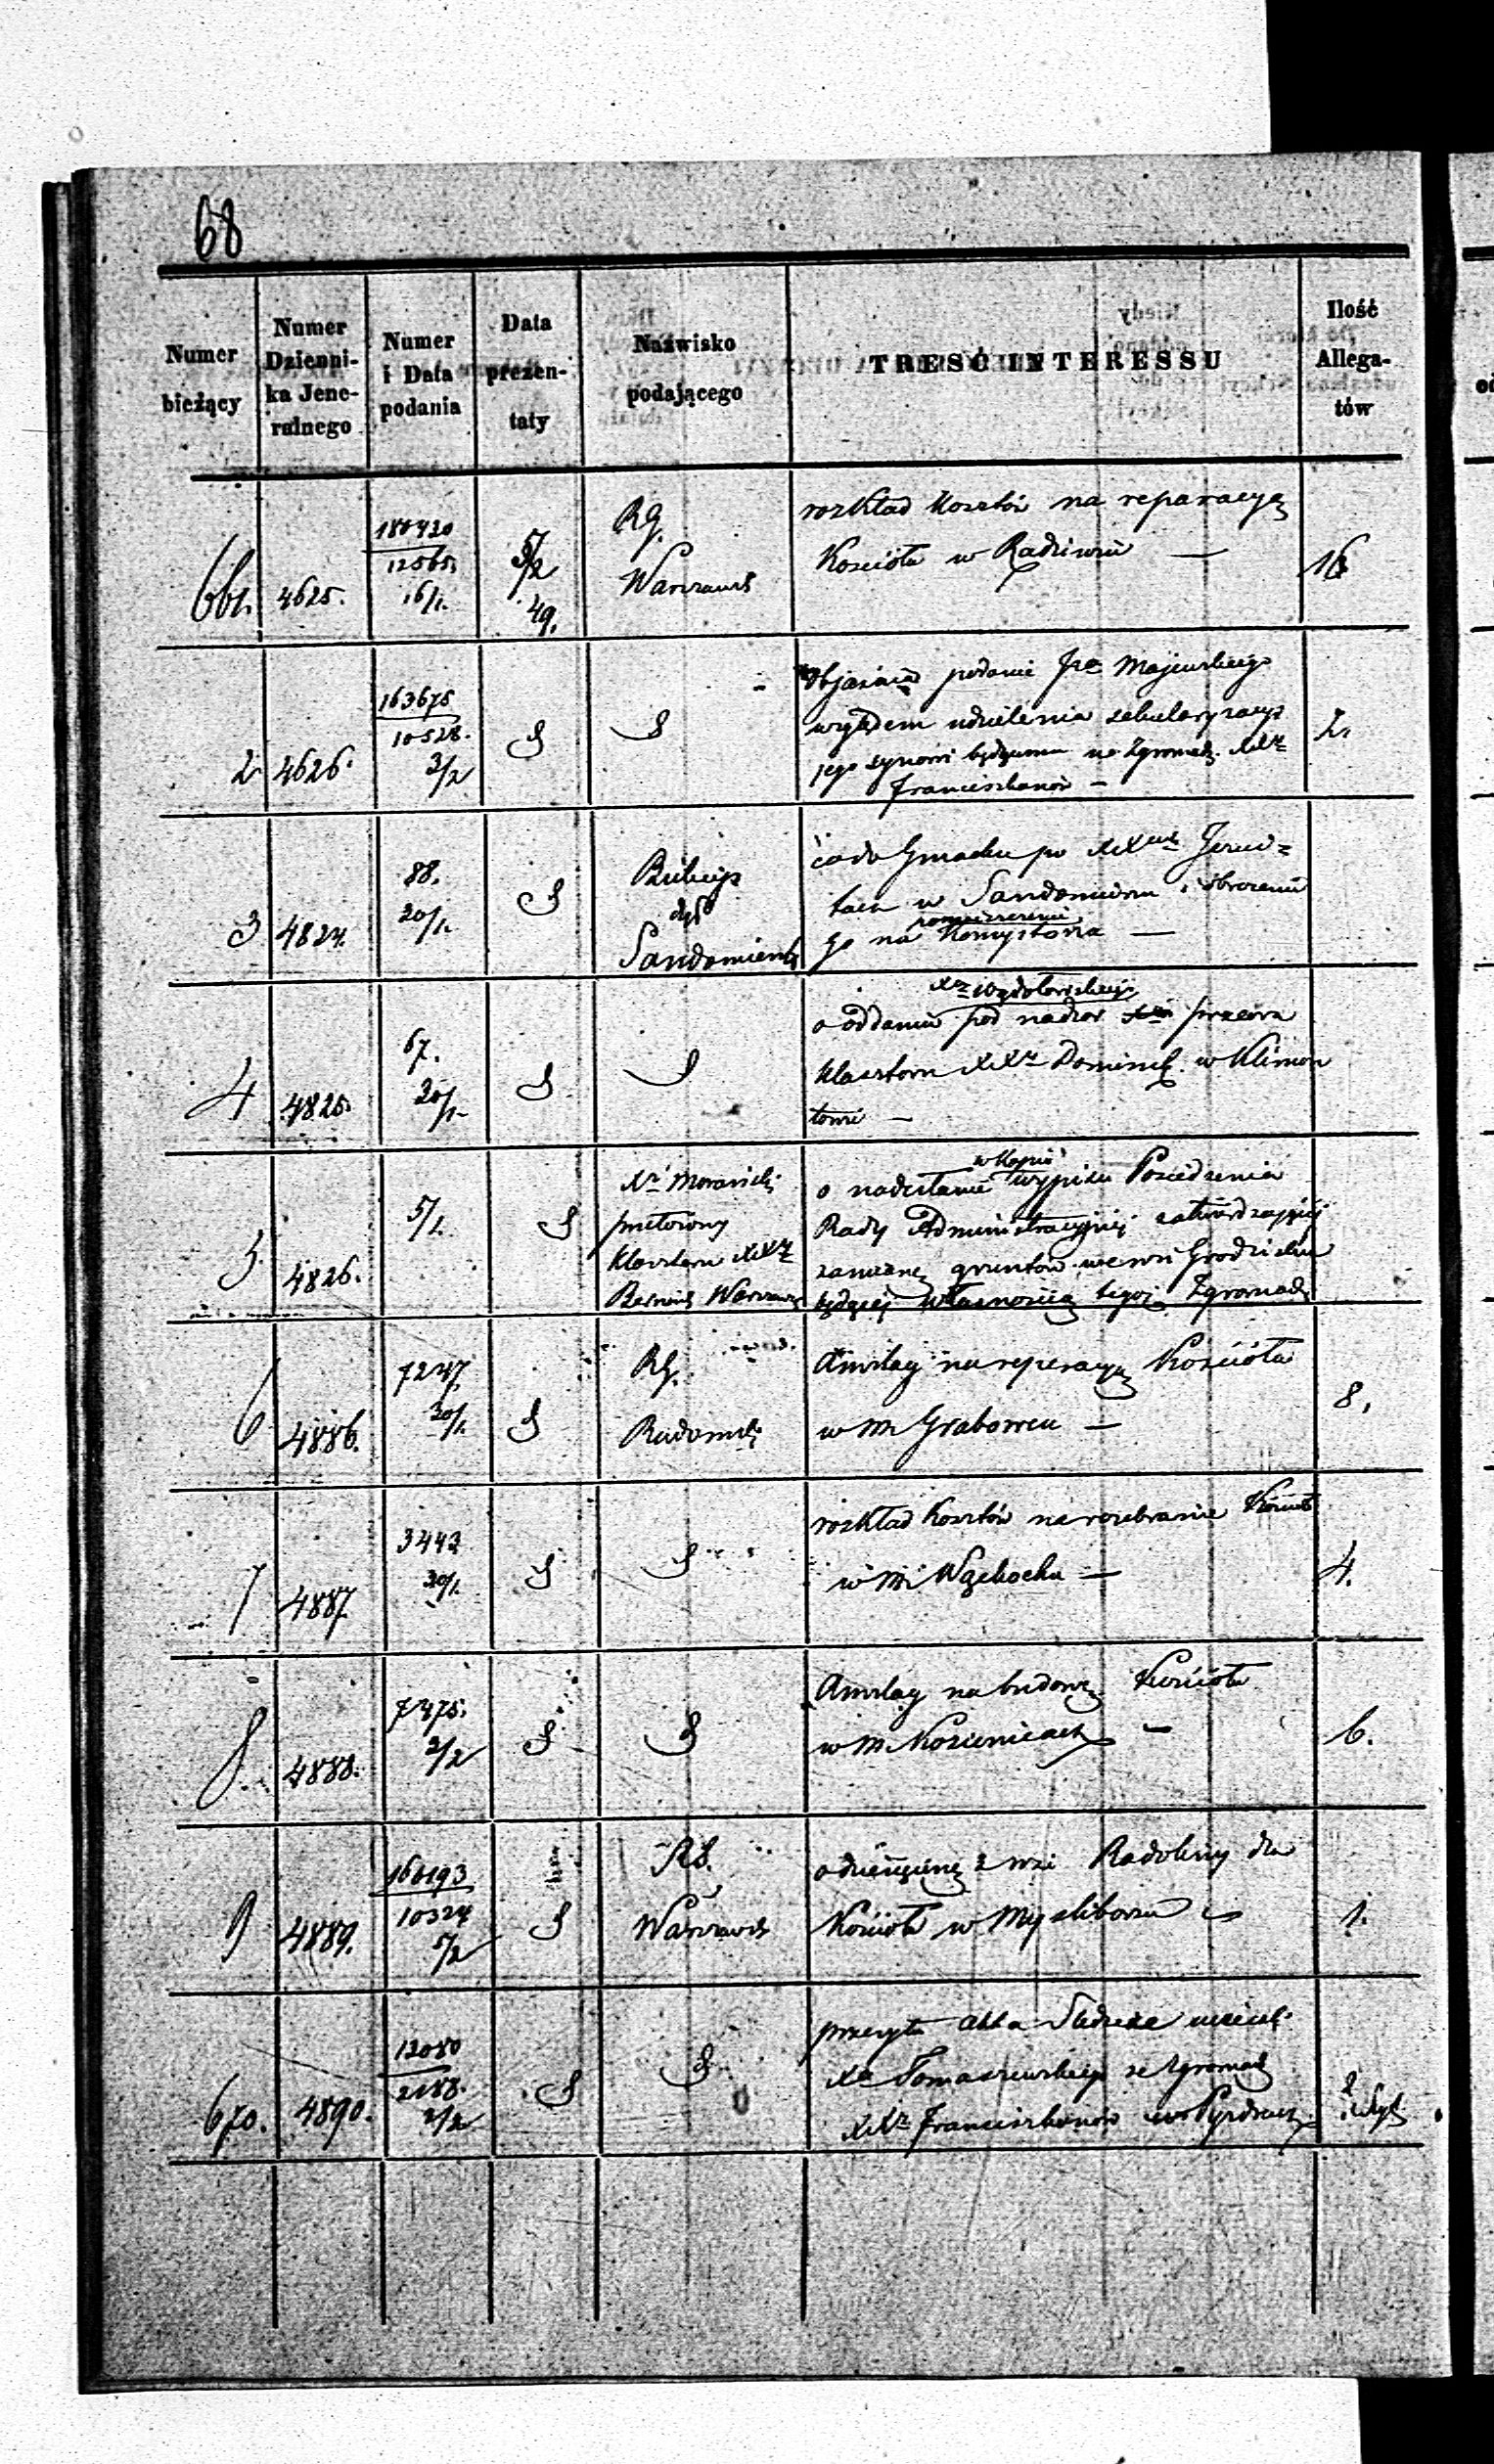 68
Numer bieżący
Numer Dzienni-ka Jene-ralnego
Numer i Data podania
Data prezen-taty
Nazwisko podającego
TREŚĆ INTERESSU
Ilość Allega-tów
661. 4625. 180420 / 12565. 16/1. 5/2 49. RG. Warszaws
rozkład kosztów na reparacyą
Kościoła w Radziwiu —
16
2 4626. 163675 / 10528. 3/2
objaśnia podanie Majewskiego
względem udzielenia sekularyzacyi
jego synowi będącemu w Zgromadz. XX
Franciszkanów —
2.
3 4824. 88. 20/1.
Biskup
Sandomiersk
co do Gmachu po XX Jezui=
tach w Sandomierzu i obrócenia
pomieszczenie
go na Konsystorza —
4 4825. 67. 20/1
o oddaniu pod nadzór przeora
Klasztoru XX Dominik. w Klimon
towie —
5 4826. 5/2.
X Morawski
przełożony
Klasztoru XX
Bernard Warszaws
w Kopii
o nadesłanie wypisu Posiedzenia
Rady Administracyjnej zatwierdzającej
zamianę gruntów we wsi Grodzisku
będącej własnością tegoż Zgromadz
6 4886. 7247. 30/1. RG. Radomsk
Anszlag na reperacyą Kościoła
w m Grabowcu —
8.
7 4887 3442 30/1.
rozkład kosztów na rozebranie Kościoł
w m Wąchocku —
4.
8. 4888. 7475. 2/2
Anszlag na budowę Kościoła
w m. Kozienicach —
6.
9 4889. 160193 / 10324 5/2 RG. Warszaws
o dziesięcinę z wsi Radoliny dla
Kościoła w Mysliborzu
1.
670. 4890. 12080 / 2188. 2/2
przesyła akta
X Tomaszewskiego ze Zgromadz
XX Franciszkanów w Pyzdrach
2